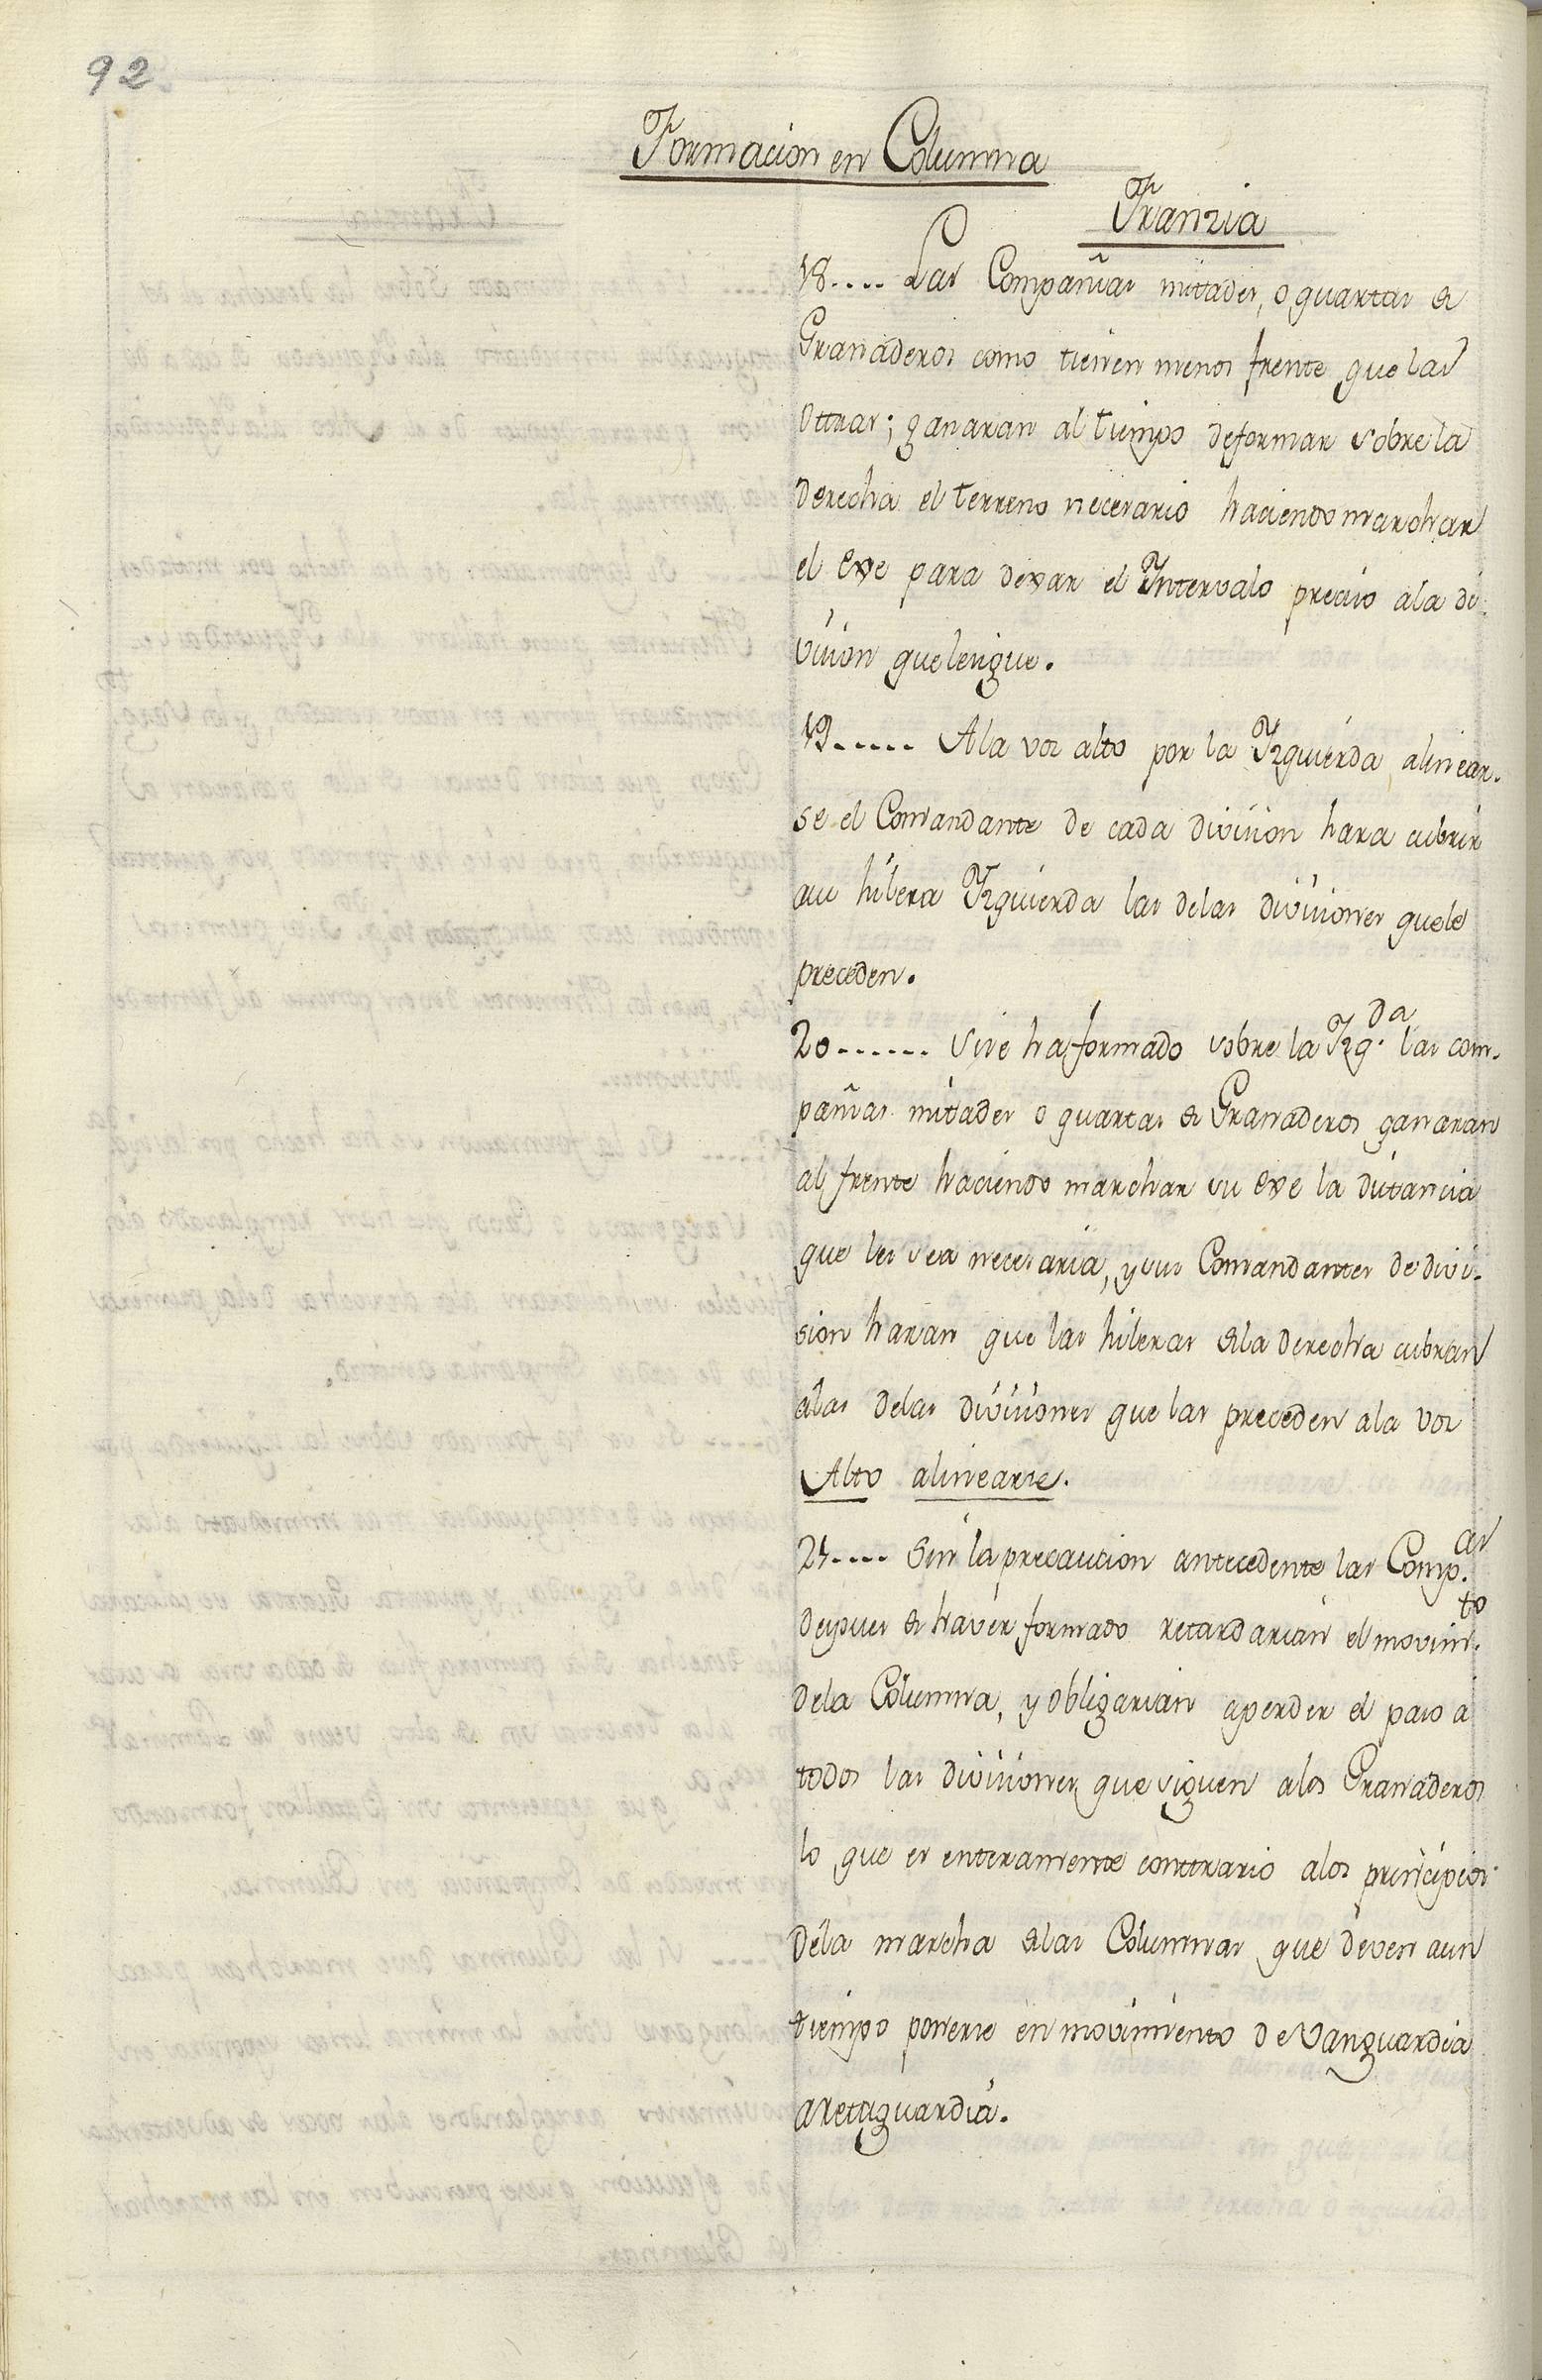 92
Formacion en Columna
Franzia
18.... Las Compañias mitades, o quartas de
Granaderos como tienen menos frente que las
ottras; ganaran al tiempo deformar sobre la
derecha el terreno necesario haciendo marchar
el exe para dexar el Intervalo preciso ala di-
vision que lesigue.
19..... Ala voz alto por la Izquierda alinear-
se el Comandante de cada division hara cubrir
asu hilera Izquierda las delas divisiones quele
preceden.
20...... Sise ha formado sobre la Izq.da las com-
pañias mitades o quartas de Granaderos ganaran
al frente haciendo marchar su exe la distancia
que les sea necesaria, y sus Comandantes de divi-
sion haran que las hileras dela derecha cubran
alas delas divisiones que las preceden ala voz
Alto alinearse.
21.... Sin la precaucion antecedente las Comp.as
despues de haver formado retardarian el movim.to
dela Columna, y obligarian aperder el paso a
todos las divisiones que siguen alos Granaderos
lo que es enteramente contrario alos principios
dela marcha delas Columnas que deven aun
tiempo ponerse en movimiento de Vanguardia
aretaguardia.